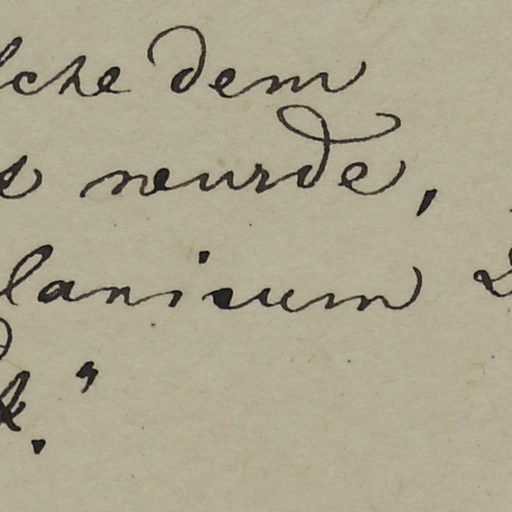 lche dem
s wurde,
lanicum D
t."